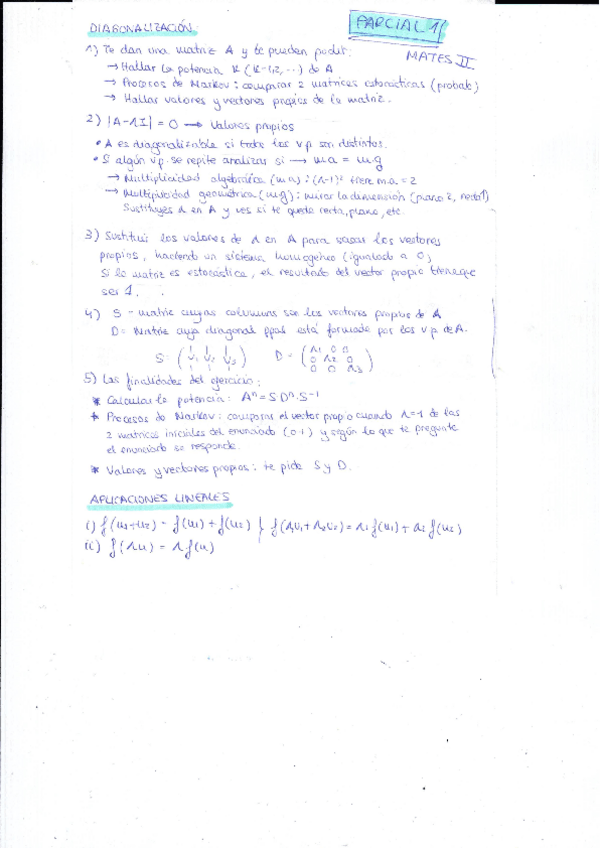 DIAGONALIZACIÓN.
PARCIAL 1
MATES II
1) Te dan una matriz A y te pueden pedir:
→ Hallar la potencia K (K=1,2,...) de A
→ Procesos de Markov: comparar 2 matrices estocásticas (probab)
→ Hallar valores y vectores propios de la matriz.
2) |A-λI| = 0 → Valores propios
• A es diagonalizable si todos los v.p son distintos.
• Si algún v.p. se repite analizar si → m.a = m.g
→ Multiplicidad algebráica (m.a): (λ-1)² tiene m.a = 2
→ Multiplicidad geométrica (m.g): mirar la dimensión (plano 2, recta 1)
Sustituyes λ en A y ves si te queda recta, plano, etc.
3) Sustituir los valores de λ en A para sacar los vectores
propios, haciendo un sistema homogéneo (igualado a 0)
Si la matriz es estocástica, el resultado del vector propio tiene que
ser 1.
4) S = matriz cuyas columnas son los vectores propios de A
D = Matriz cuya diagonal ppal está formada por los v.p de A.
S = (V₁ V₂ V₃) D = (λ₁ 0 0
0 λ₂ 0
0 0 λ₃)
5) Las finalidades del ejercicio:
* Calcular la potencia: Aⁿ = S Dⁿ · S⁻¹
* Procesos de Markov: comparar el vector propio cuando λ=1 de las
2 matrices iniciales del enunciado (0-1) y según lo que te pregunte
el enunciado se responde.
* Valores y vectores propios: te pide S y D.
APLICACIONES LINEALES
i) f(u₁+u₂) = f(u₁) + f(u₂) } f(λ₁u₁+λ₂u₂) = λ₁f(u₁) + λ₂f(u₂)
ii) f(λu) = λf(u)